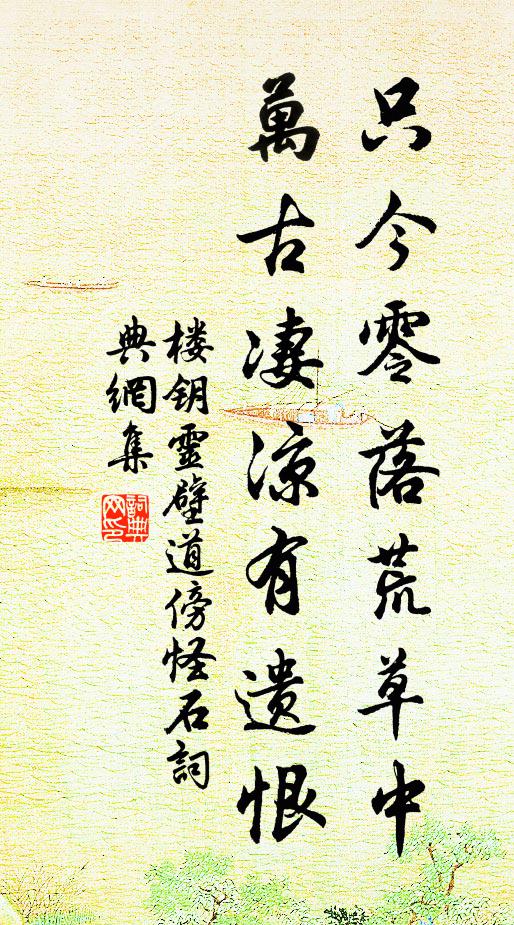 只今零落荒草中
萬古凄涼有遺恨
楼钥靈壁道傍怪石詞
典網集
詞典
网印